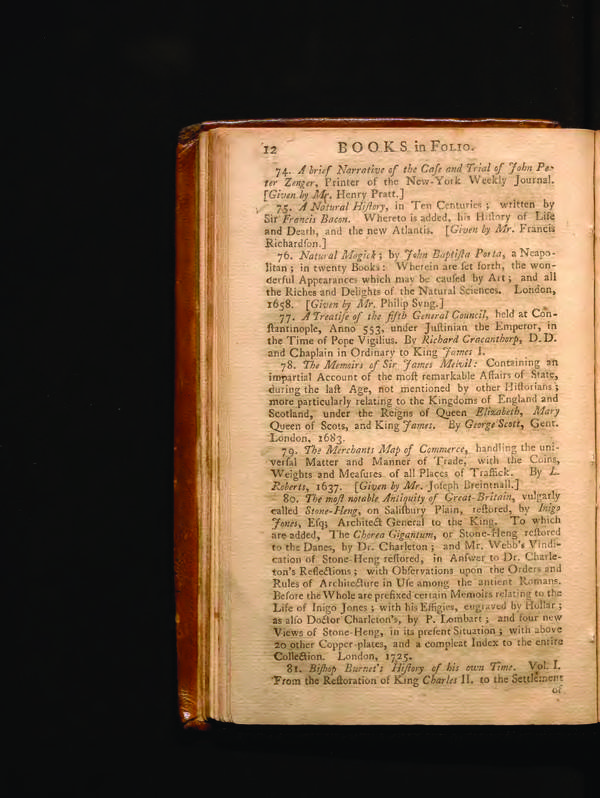 12 BOOKS in FOLIO.
74. A brief Narrative of the Caſe and Trial of John Pe-
ter Zenger, Printer of the New-York Weekly Journal.
[Given by Mr. Henry Pratt.]
75. A Natural Hiſtory, in Ten Centuries; written by
Sir Francis Bacon. Whereto is added, his Hiſtory of Life
and Death, and the new Atlantis. [Given by Mr. Francis
Richardſon.]
76. Natural Magick; by John Baptiſta Porta, a Neapo-
litan; in twenty Books: Wherein are ſet forth, the won-
derful Appearances which may be cauſed by Art; and all
the Riches and Delights of the Natural Sciences. London,
1658. [Given by Mr. Philip Syng.]
77. A Treatiſe of the fifth General Council, held at Con-
ſtantinople, Anno 553, under Juſtinian the Emperor, in
the Time of Pope Vigilius. By Richard Cracanthorp, D.D.
and Chaplain in Ordinary to King James I.
78. The Memoirs of Sir James Melvil: Containing an
impartial Account of the moſt remarkable Affairs of State,
during the laſt Age, not mentioned by other Hiſtorians;
more particularly relating to the Kingdoms of England and
Scotland, under the Reigns of Queen Elizabeth, Mary
Queen of Scots, and King James. By George Scott, Gent.
London, 1683.
79. The Merchants Map of Commerce, handling the uni-
verſal Matter and Manner of Trade, with the Coins,
Weights and Meaſures of all Places of Traffick. By L.
Roberts, 1637. [Given by Mr. Joſeph Breintnall.]
80. The moſt notable Antiquity of Great-Britain, vulgarly
called Stone-Heng, on Saliſbury Plain, reſtored, by Inigo
Jones, Eſq; Architect General to the King. To which
are added, The Chorea Gigantum, or Stone-Heng reſtored
to the Danes, by Dr. Charleton; and Mr. Webb's Vindi-
cation of Stone-Heng reſtored, in Anſwer to Dr. Charle-
ton's Reflections; with Obſervations upon the Orders and
Rules of Architecture in Uſe among the antient Romans.
Before the Whole are prefixed certain Memoirs relating to the
Life of Inigo Jones; with his Effigies, engraved by Hollar;
as alſo Doctor Charleton's, by P. Lombart; and four new
Views of Stone-Heng, in its preſent Situation; with above
20 other Copper-plates, and a compleat Index to the entire
Collection. London, 1725.
81. Biſhop Burnet's Hiſtory of his own Time. Vol. I.
From the Reſtoration of King Charles II. to the Settlement
of